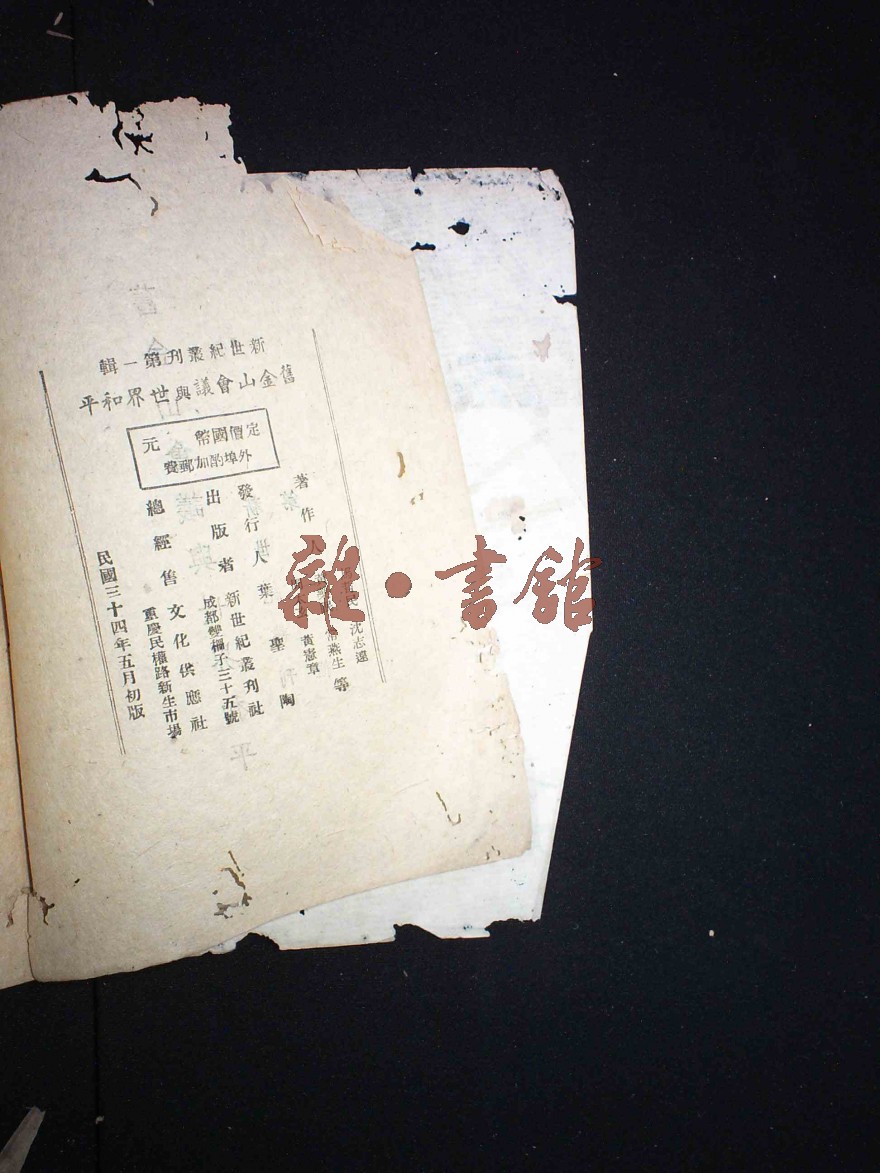 新世紀叢刊第一輯
舊金山會議與世界和平
定價國幣 元
外埠酌加郵費
著作人
沈志遠
黃憲章
燕生等
發行人 葉聖陶
出版者 新世紀叢刊社
成都 子三十五號
總經售 文化供應社
重慶民權路新生市場
民國三十四年五月初版
雜·書館